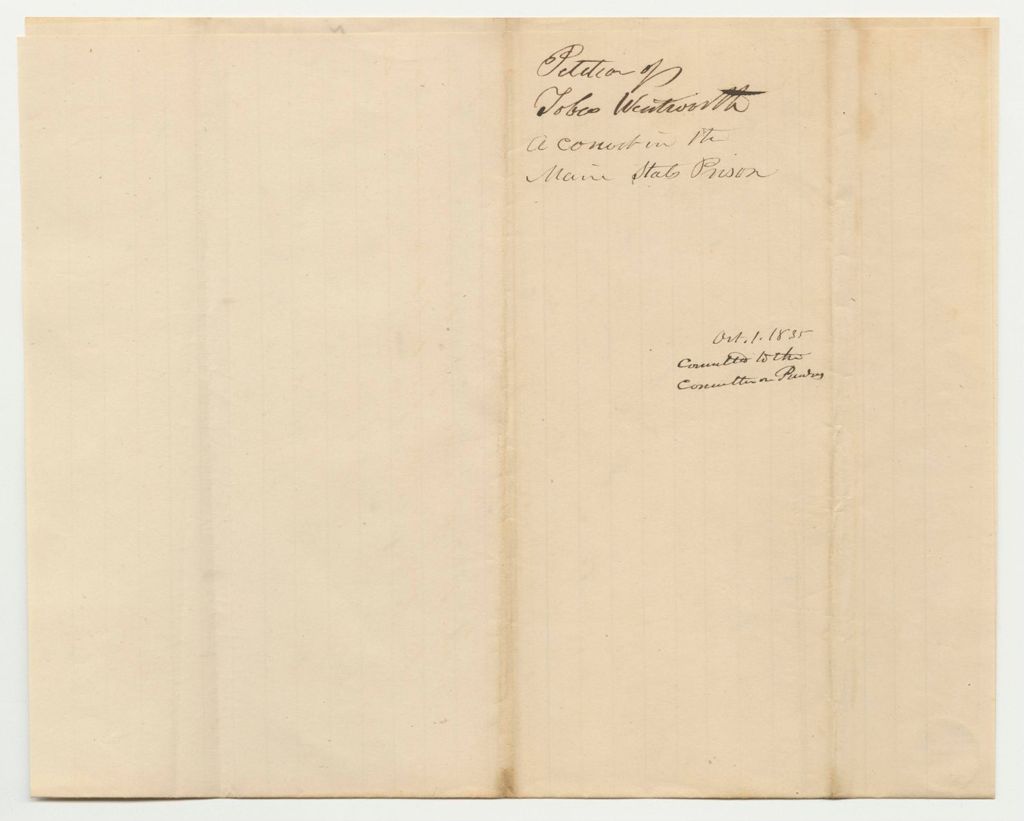 Petition of
Tobas Wentworth
A convict in the
Maine State Prison
Oct. 1. 1835
Committed to the
Committee on Pardons